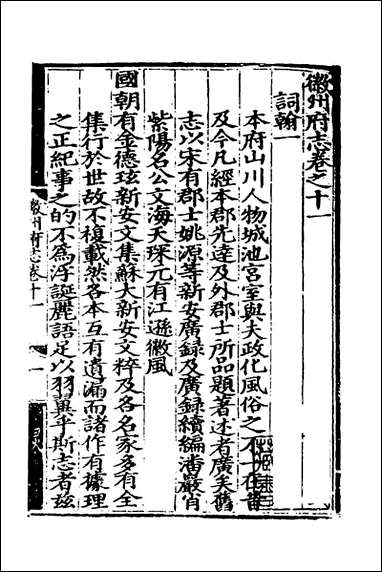 徽州府志卷之十一
詞翰一
本府山川人物城池宮室與夫政化風俗之
及今凡經本郡先達及外郡士所品題著述者廣矣舊
志以宋有郡士姚源等新安廣録及廣録續編潘嚴肖
紫陽名公文海天琛元有江遜徽風
國朝有金德玹新安文集蘇大新安文粹及各名家多有全
集行於世故不複載然各本互有遺漏而諸作有據理
之正紀事之的不為浮誕麗語足以羽翼乎斯志者茲
徽州府志卷十一 一